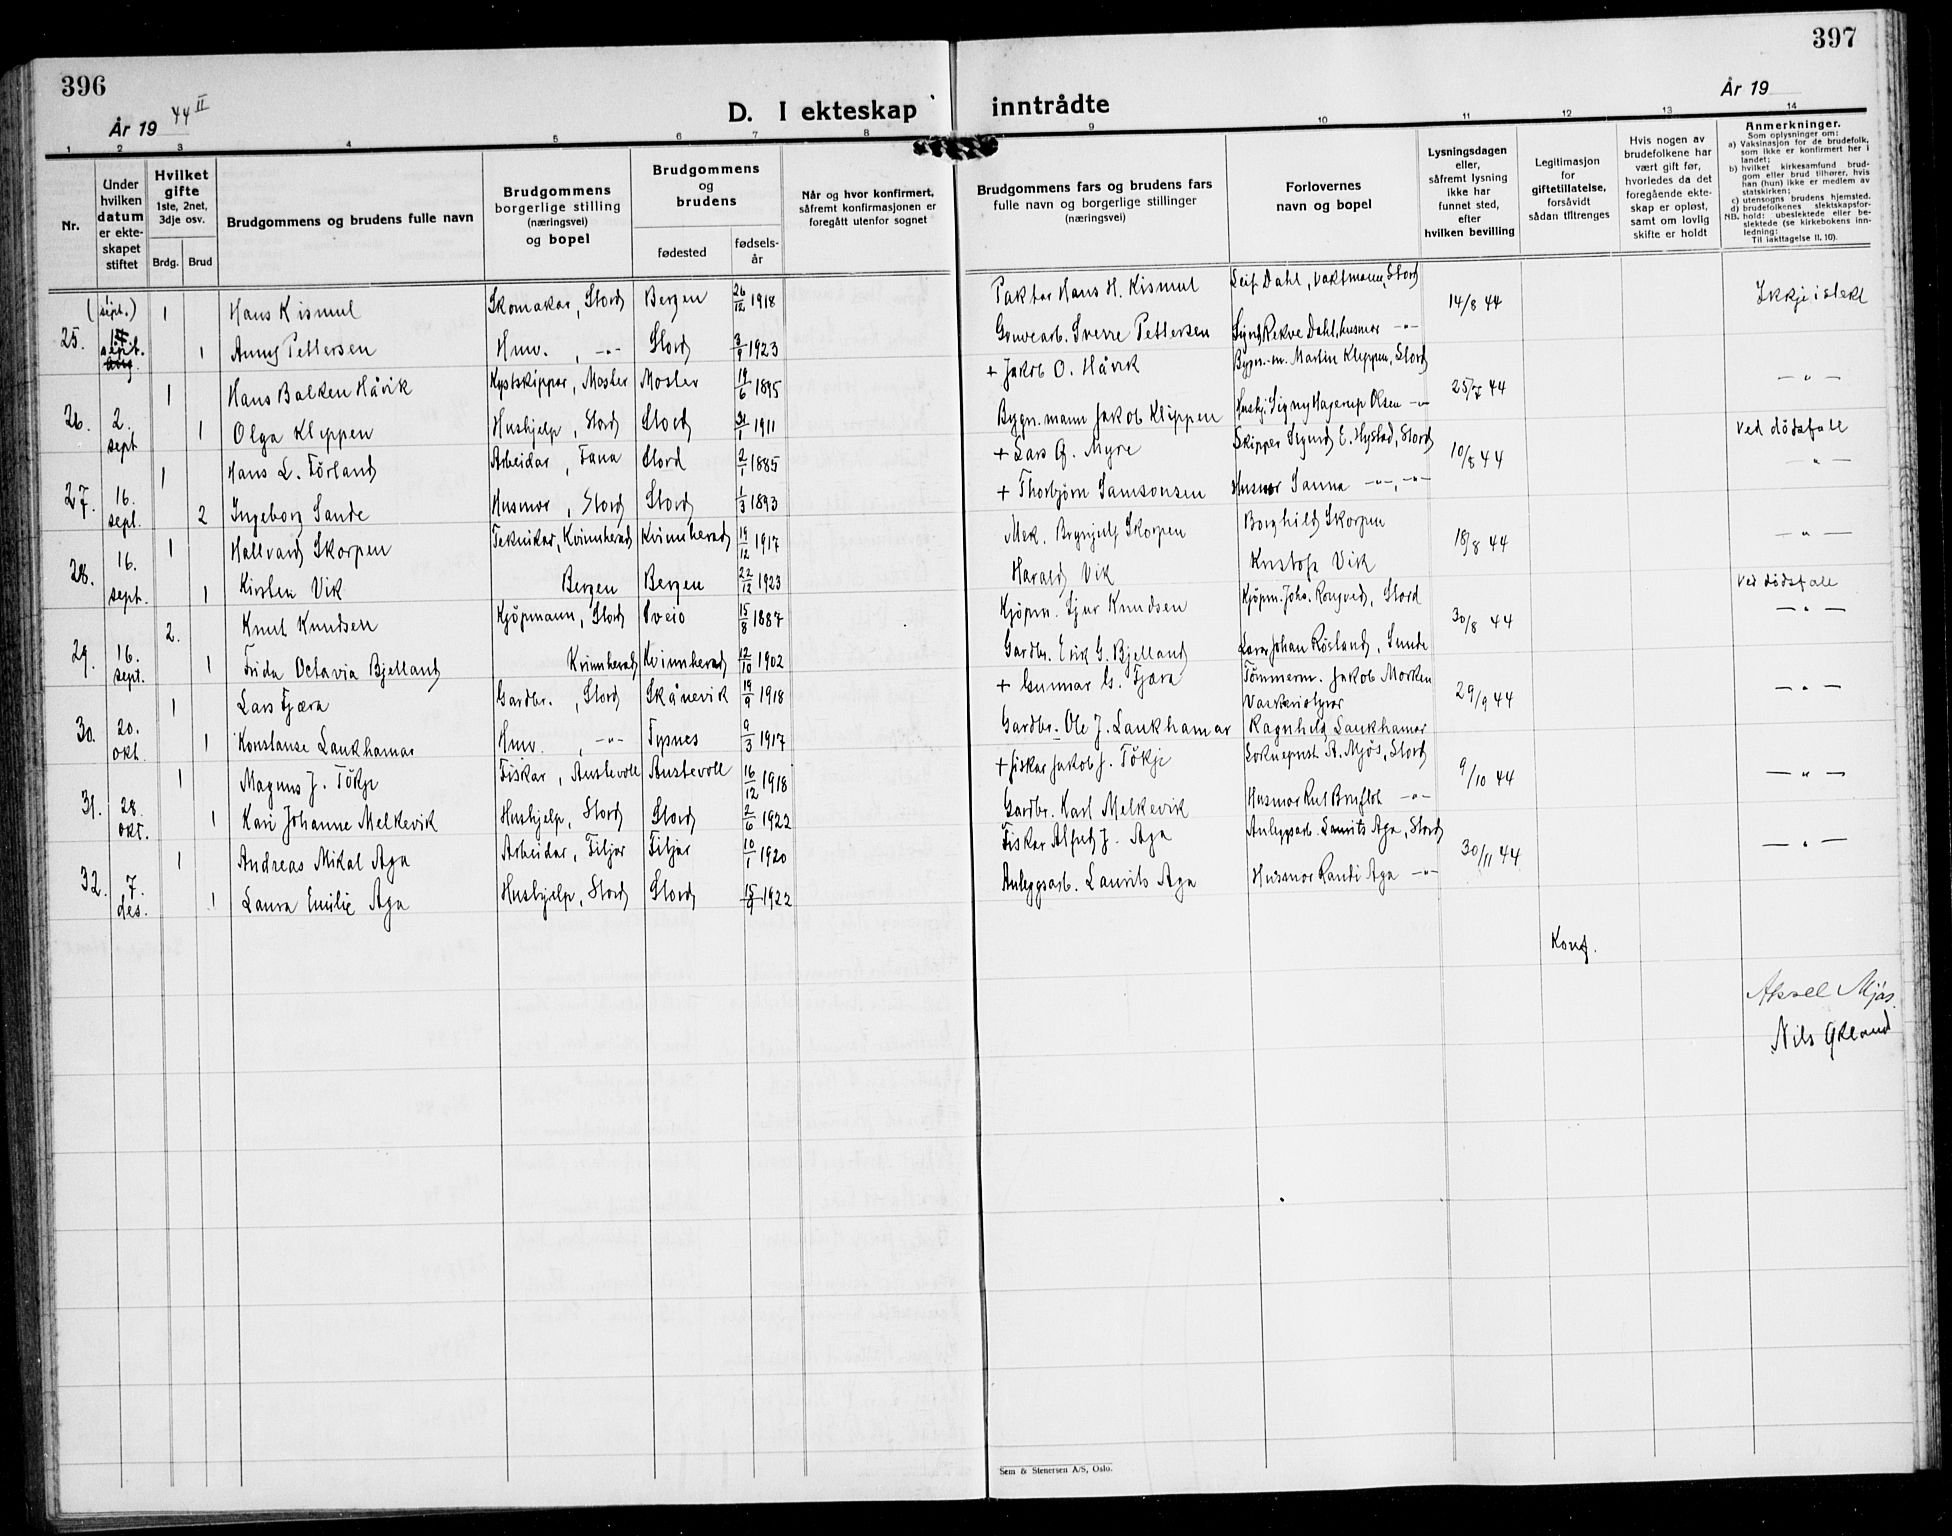 396
397
År 19 44 II
D. I ekteskap inntrådte
År 19
1 2 3 4 5 6 7 8 9 10 11 12 13 14
Nr.
Under hvilken datum er ekte-skapet stiftet
Hvilket gifte 1ste, 2net, 3dje osv.
Brdg. Brud
Brudgommens og brudens fulle navn
Brudgommens borgerlige stilling (næringsvei) og bopel
Brudgommens og brudens
fødested
fødsels-år
Når og hvor konfirmert, såfremt konfirmasjonen er foregått utenfor sognet
Brudgommens fars og brudens fars fulle navn og borgerlige stillinger (næringsvei)
Forlovernes navn og bopel
Lysningsdagen eller, såfremt lysning ikke har funnet sted, efter hvilken bevilling
Legitimasjon for giftetillatelse, forsåvidt sådan tiltrenges
Hvis nogen av brudefolkene har vært gift før, hvorledes da det foregående ekte-skap er opløst, samt om lovlig skifte er holdt
Anmerkninger.
Som oplysninger om:
a) Vaksinasjon for de brudefolk, som ikke er konfirmert her i landet;
b) hvilket kirkesamfund brud-gom eller brud tilhører, hvis han (hun) ikke er medlem av statskirken;
c) utensogns brudens hjemsted.
d) brudefolkenes slektskapsfor-hold: ubeslektede eller be-slektede (se kirkebokens inn-ledning:
NB. Til iakttagelse II. 10).
(1 sept.) 1 Hans Kismul Skomakar, Stord Bergen 26/12 1918 Paktar Hans H. Kismul Leif Dahl, vaktmann, Stord 14/8 44 Ikkje i slekt
25. sept. 1 Anny Pettersen Hmv. , -"- Stord 3/9 1923 Gruvearb. Sverre Pettersen Signy Rekve Dahl, husmor -"-
1 Hans Bakken Håvik Kystskipper, Moster Moster 19/6 1895 + Jakob O. Håvik Bygn.-m. Martin Kleppen, Stord 25/7 44 - " -
26. 2. sept 1 Olga Kleppen Hushjelp, Stord Stord 1911 Bygn. mann Jakob Kleppen Hushj. Signy Hagerup Olsen -"-
Ved dödsfall
1 Hans L. Förland Arbeidar, Fana Stord 2/1 1885 + Lars O. Myre Skipper Sigurd E. Hystad, Stord 10/8 44 - " -
27. 16. sept. 2 Ingeborg Sande Husmor, Stord Stord 1/3 1893 + Thorbjørn Samsonsen Husmor Sanna -"-, -"-
28. 16. sept. 1 Hallvard Skorpen Teknikar, Kvinnherad Kvinnherad 19/12 1917 Mek. Brynjulf Skorpen Borghild Skorpen 18/8 44 - " -
1 Kirsten Vik Bergen Bergen 22/12 1923 Harald Vik Kristofa Vik
Ved dödsfall
29. 16. sept. 2. Knut Knudsen Kjöpmann, Stord Sveio 15/8 1887 Kjöpm. Sjur Knudsen Kjöpm. Johs. Rongved, Stord 30/8 44 - " -
1 Frida Octavia Bjelland Kvinnherad Kvinnherad 12/10 1902 Gardbr. Erik G. Bjelland Johan Rösland, Sunde
30. 20. okt. 1 Lars Fjæra Gardbr. , Stord Skånevik 19/9 1918 + Gunnar G. Fjæra Tömmerm. Jakob Morken 29/9 44 - " -
1 Konstanse Laukhamar Hmv. , -"- Tysnes 9/3 1917 Gardbr. Ole J. Laukhamar Ragnhild Laukhamar
31. 28. okt. 1 Magnus J. Tökje Fiskar, Austevoll Austevoll 16/12 1918 + fiskar Jakob J. Tökje Sokneprest A. Mjös, Stord 9/10 44 - " -
1 Kari Johanne Melkevik Hushjelp, Stord Stord 2/6 1922 Gardbr. Karl Melkevik Husmor Rut Brufloh -"-
32. 7. des. 1 Andreas Mikal Aga Arbeidar, Fitjar Fitjar 10/1 1920 Fiskar Alfred J. Aga Anleggsarb. Laurits Aga, Stord 30/11 44 - " -
1 Laura Emilie Aga Hushjelp, Stord Stord 15/9 1922 Anleggsarb. Laurits Aga Husmor Randi Aga -"-
Konf.
Aksel Mjös.
Nils Økland
Sem & Stenersen A/S, Oslo.